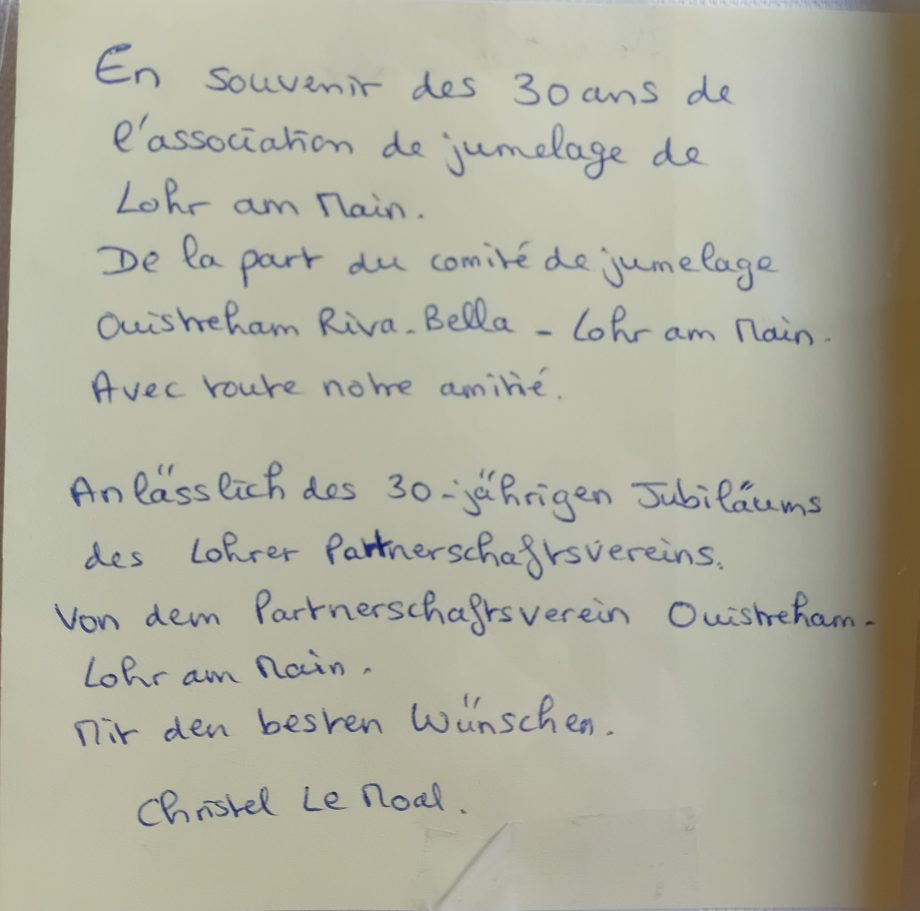 En souvenir des 30 ans de
l'association de jumelage de
Lohr am Main.
De la part du comité de jumelage
Ouistreham Riva-Bella - Lohr am Main.
Avec toute notre amitié.
Anlässlich des 30-jährigen Jubiläums
des Lohrer Partnerschaftsvereins.
Von dem Partnerschaftsverein Ouistreham-
Lohr am Main.
Mit den besten Wünschen.
Christel Le Moal.